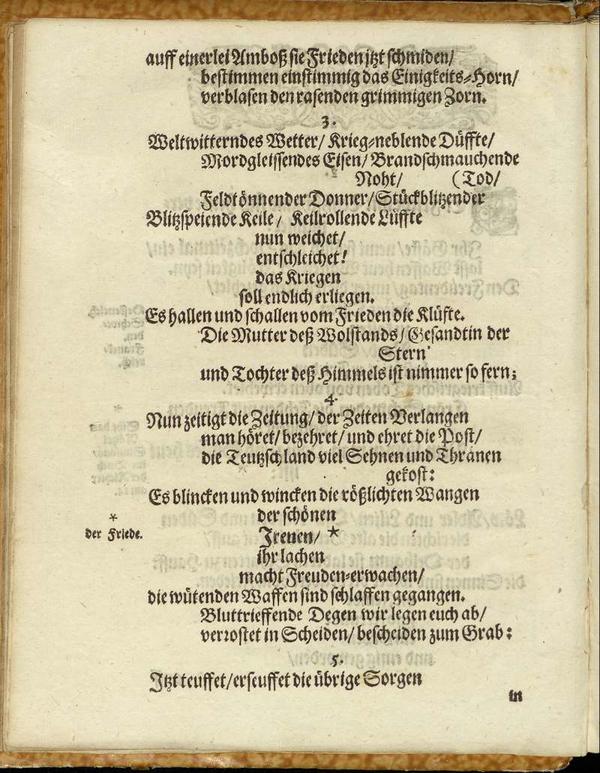 auff einerlei Amboß sie Frieden jtzt schmiden/
bestimmen einstimmig das Einigkeits-Horn/
verblasen den rasenden grimmigen Zorn.
3.
Weltwitterndes Wetter/ Krieg-neblende Düffte/
Mordgleissendes Eisen/ Brandschmauchende
Noht/ (Tod/
Feldtönnender Donner/ Stückblitzender
Blitzspeiende Keile/ Keilrollende Lüffte
nun weichet/
entschleichet!
das Kriegen
soll endlich erliegen.
Es hallen und schallen vom Frieden die Klüfte.
Die Mutter deß Wolstands/ Gesandtin der
Stern
und Tochter deß Himmels ist nimmer so fern;
4.
Nun zeitigt die Zeitung/ der Zeiten Verlangen
man höret/ bezehret/ und ehret die Post/
die Teutschland viel Sehnen und Thränen
gekost:
Es blincken und wincken die rößlichten Wangen
der schönen
Irenen/ *
* der Friede.
ihr lachen
macht Freuden-erwachen/
die wütenden Waffen sind schlaffen gegangen.
Bluttrieffende Degen wir legen euch ab/
verrostet in Scheiden/ bescheiden zum Grab:
5.
Jtzt teuffet/ erseuffet die übrige Sorgen
in